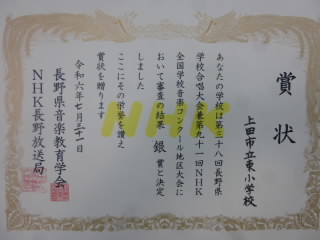 賞状
上田市立東小学校
あなたの学校は第三十八回長野県
学校合唱大会兼第九十一回NHK
全国学校音楽コンクール地区大会に
おいて審査の結果 銀 賞と決定
しました
ここにその栄誉を讃え
賞状を贈ります
令和六年七月三十一日
長野県音楽教育学会
NHK長野放送局
NHK